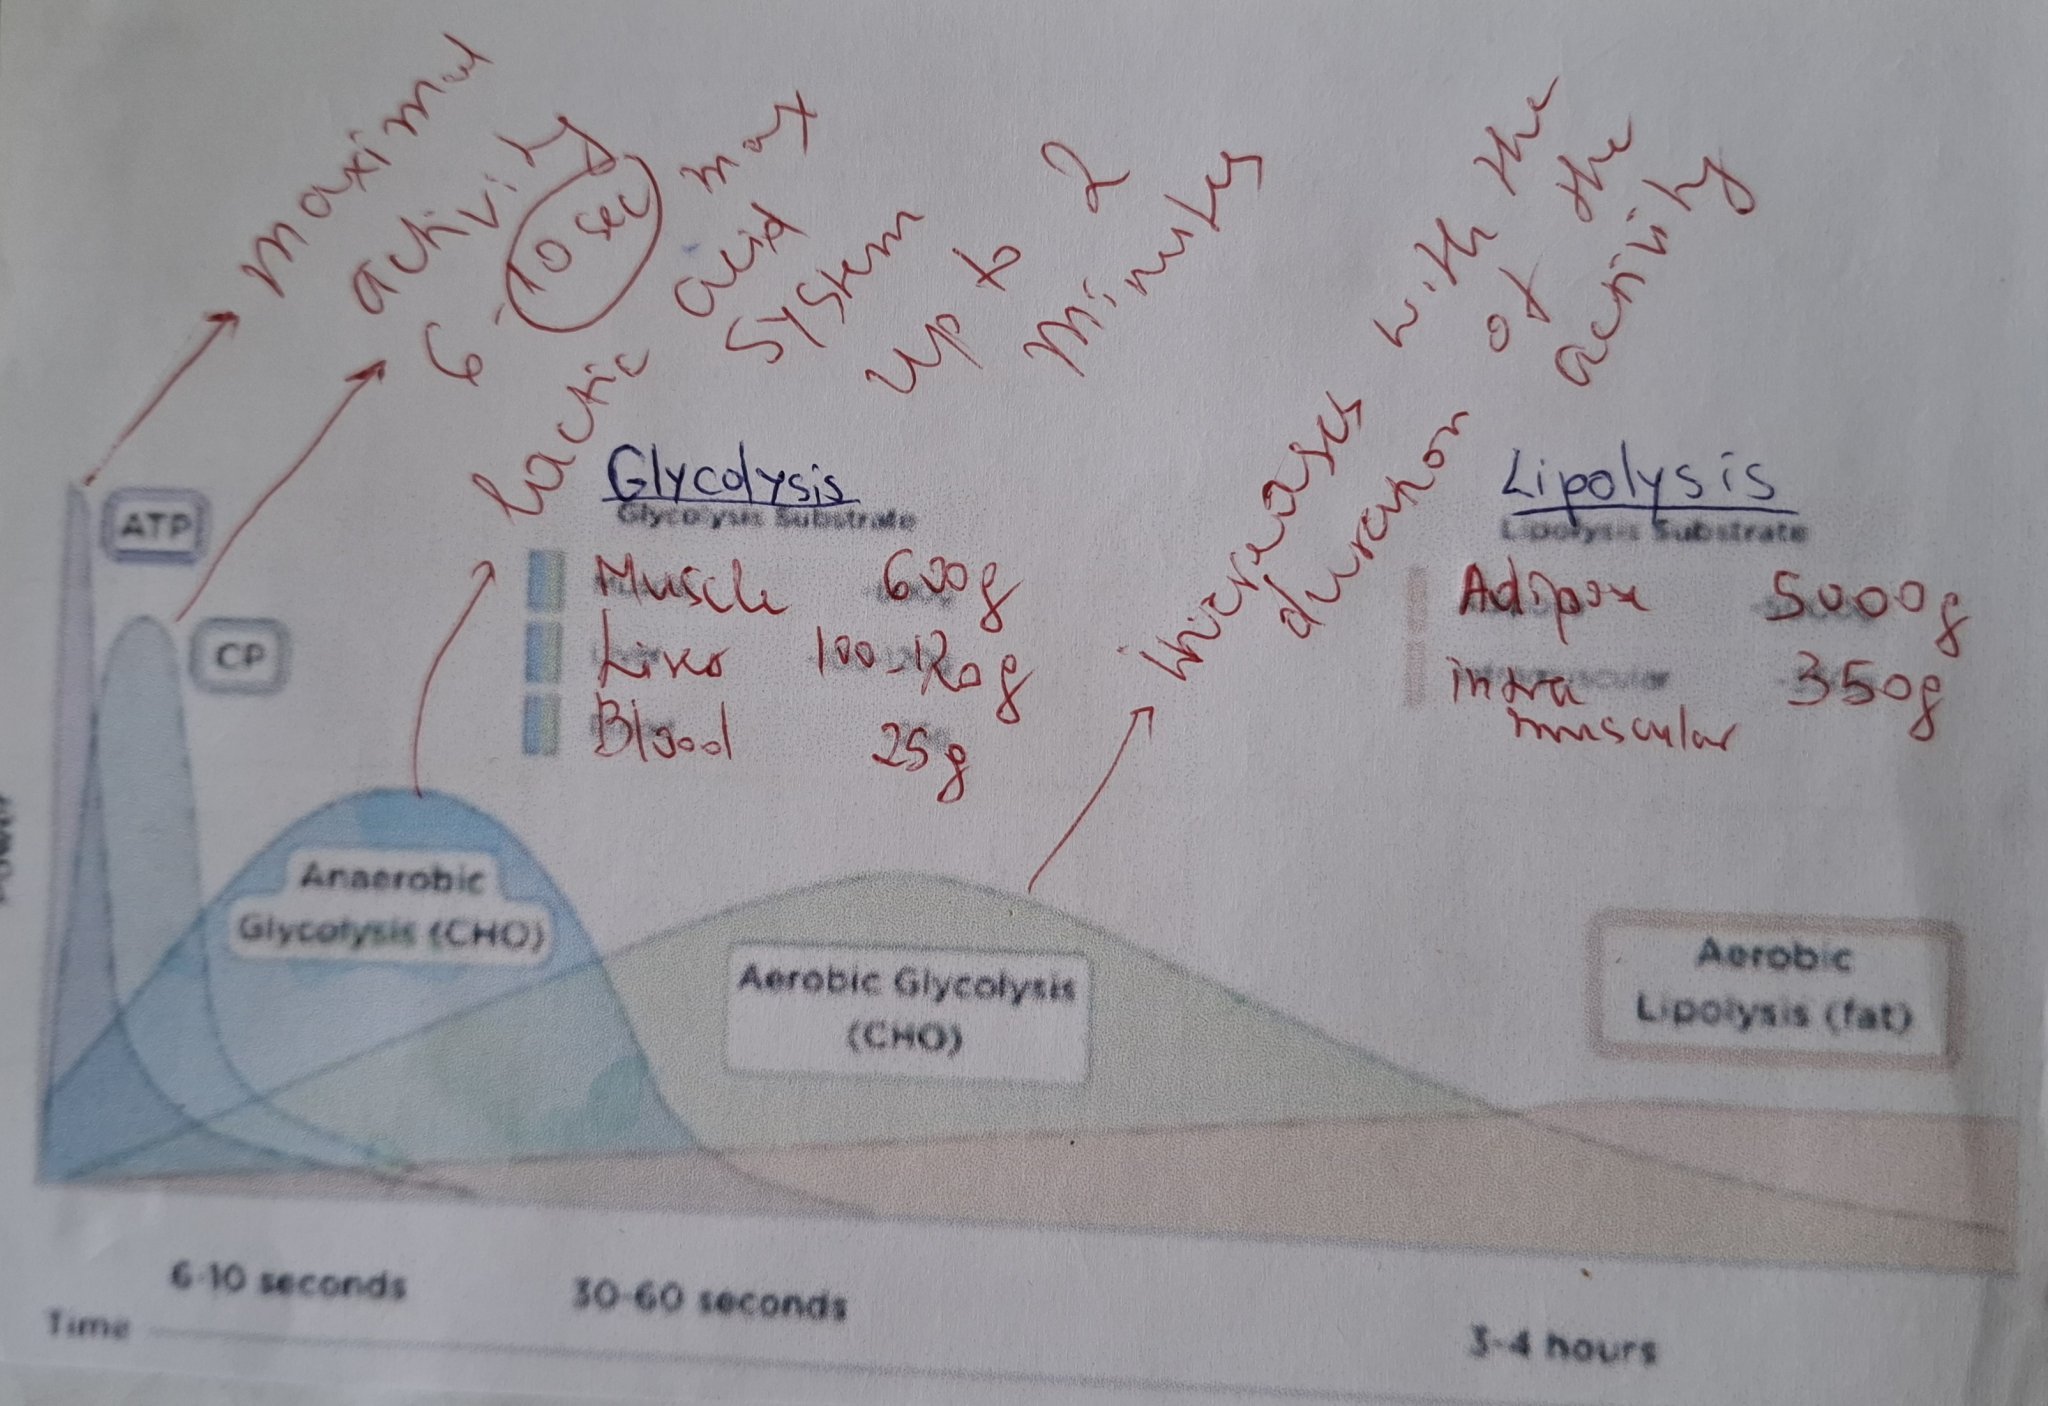 maximal
activity
6-10 sec
Lactic
acid max
system
up to 2
minutes
increases with the
duration of the
activity
Glycolysis
Glycolysis Substrate
Muscle 600g
Liver 100-120g
Blood 25g
Lipolysis
Lipolysis Substrate
Adipose 5000g
intra 350g
muscular
ATP
CP
Power
Anaerobic
Glycolysis (CHO)
Aerobic Glycolysis
(CHO)
Aerobic
Lipolysis (fat)
6-10 seconds
30-60 seconds
3-4 hours
Time